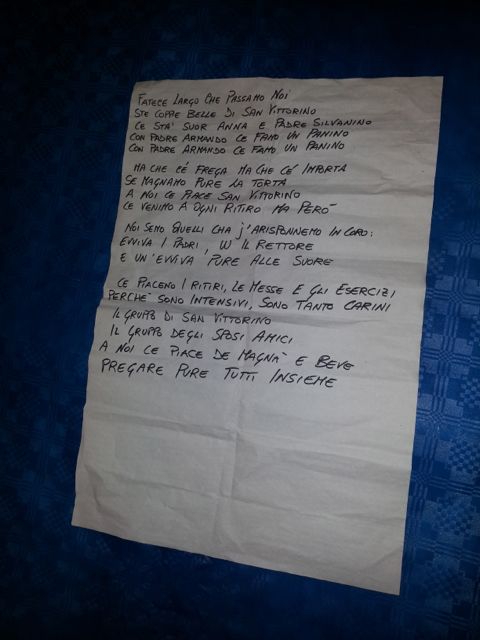 FATECE LARGO CHE PASSAMO NOI
STE COPPE BELLE DI SAN VITTORINO
CE STA' SUOR ANNA E PADRE SILVANINO
CON PADRE ARMANDO CE FAMO UN PANINO
CON PADRE ARMANDO CE FAMO UN PANINO
MA CHE CÉ FREGA MA CHE CÉ IMPORTA
SE MAGNAMO PURE LA TORTA
A NOI CE PIACE SAN VITTORINO
CE VENIMO A OGNI RITIRO MA PERO'
NOI SEMO QUELLI CHA J'ARISPONNEMO IN CORO:
EVVIVA I PADRI, W IL RETTORE
E UN'EVVIVA PURE ALLE SUORE
CE PIACENO I RITIRI, LE MESSE E GLI ESERCIZI
PERCHE' SONO INTENSIVI, SONO TANTO CARINI
IL GRUPPO DI SAN VITTORINO
IL GRUPPO DEGLI SPOSI AMICI
A NOI CE PIACE DE MAGNA' E BEVE
PREGARE PURE TUTTI INSIEME